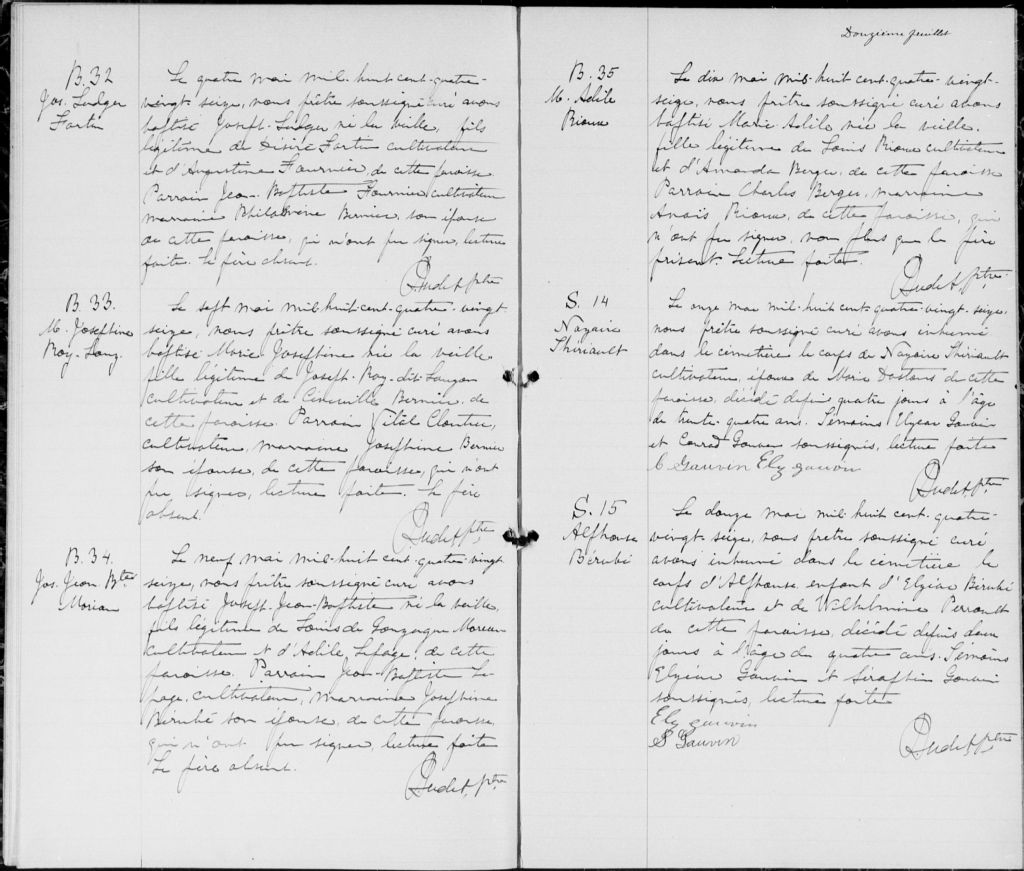 B. 32
Jos. Ludger
Fortin
Le quatre mai mil-huit-cent-quatre-
vingt-seize, nous prêtre soussigné curé avons
baptisé Joseph-Ludger né la veille, fils
légitime de Désiré Fortin cultivateur
et d'Augustine Fournier, de cette paroisse.
Parrain Jean-Baptiste Fournier, cultivateur
marraine Philomène Bernier, son épouse
de cette paroisse, qui n'ont pu signer, lecture
faite. Le père absent.
Audet ptre
B. 33.
M. Josephine
Roy-Lauz.
Le sept mai mil-huit-cent-quatre-vingt
seize, nous prêtre soussigné curé avons
baptisé Marie Josephine née la veille
fille légitime de Joseph-Roy-dit-Lauzon
cultivateur et de Bernier, de
cette paroisse. Parrain Vital Cloutier,
cultivateur, marraine Josephine Bernier
son épouse, de cette paroisse, qui n'ont
pu signer, lecture faite. Le père
absent.
Audet ptre
B. 34.
Jos. Jean Bte
Moreau
Le neuf mai mil-huit-cent-quatre-vingt
seize, nous prêtre soussigné curé avons
baptisé Joseph-Jean-Baptiste né la veille,
fils légitime de Louis de Gonzague Moreau
cultivateur et d'Adèle Lepage, de cette
paroisse. Parrain Jean-Baptiste Le-
page, cultivateur, marraine Josephine
Bérubé son épouse, de cette paroisse,
qui n'ont pu signer, lecture faite
Le père absent.
Audet, ptre
Douzième feuillet
B. 35
M. Adèle
Rioux
Le dix mai mil-huit-cent-quatre-vingt-
seize, nous prêtre soussigné curé avons
baptisé Marie Adèle née la veille.
fille légitime de Louis Rioux cultivateur
et d'Amanda Berger de cette paroisse
Parrain Charles Berger, marraine
Anaïs Rioux, de cette paroisse, qui
n'ont pu signer, non plus que le père
présent. Lecture faite.
Audet ptre
S. 14
Nazaire
Thiriault
Le onze mai mil-huit-cent-quatre-vingt-seize,
nous prêtre soussigné curé avons inhumé
dans le cimetière le corps de Nazaire Thiriault
cultivateur, époux de Marie Dastous de cette
paroisse, décédé depuis quatre jours à l'âge
de trente-quatre ans. Témoins Elyéar Gauvin
et Conrad Gauvin soussignés, lecture faite
C Gauvin Elz gauvin
Audet ptre
S. 15
Alphonse
Bérubé
Le douze mai mil-huit-cent-quatre-
vingt-seize, nous prêtre soussigné curé
avons inhumé dans le cimetière le
corps d'Alphonse enfant d'Elzéar Bérubé
cultivateur et de Wilhelmine Perrault
de cette paroisse, décédé depuis deux
jours à l'âge de quatre ans. Témoins
Elzéar Gauvin et Séraphin Gauvin
soussignés, lecture faite
Elz gauvin
S Gauvin
Audet, ptre